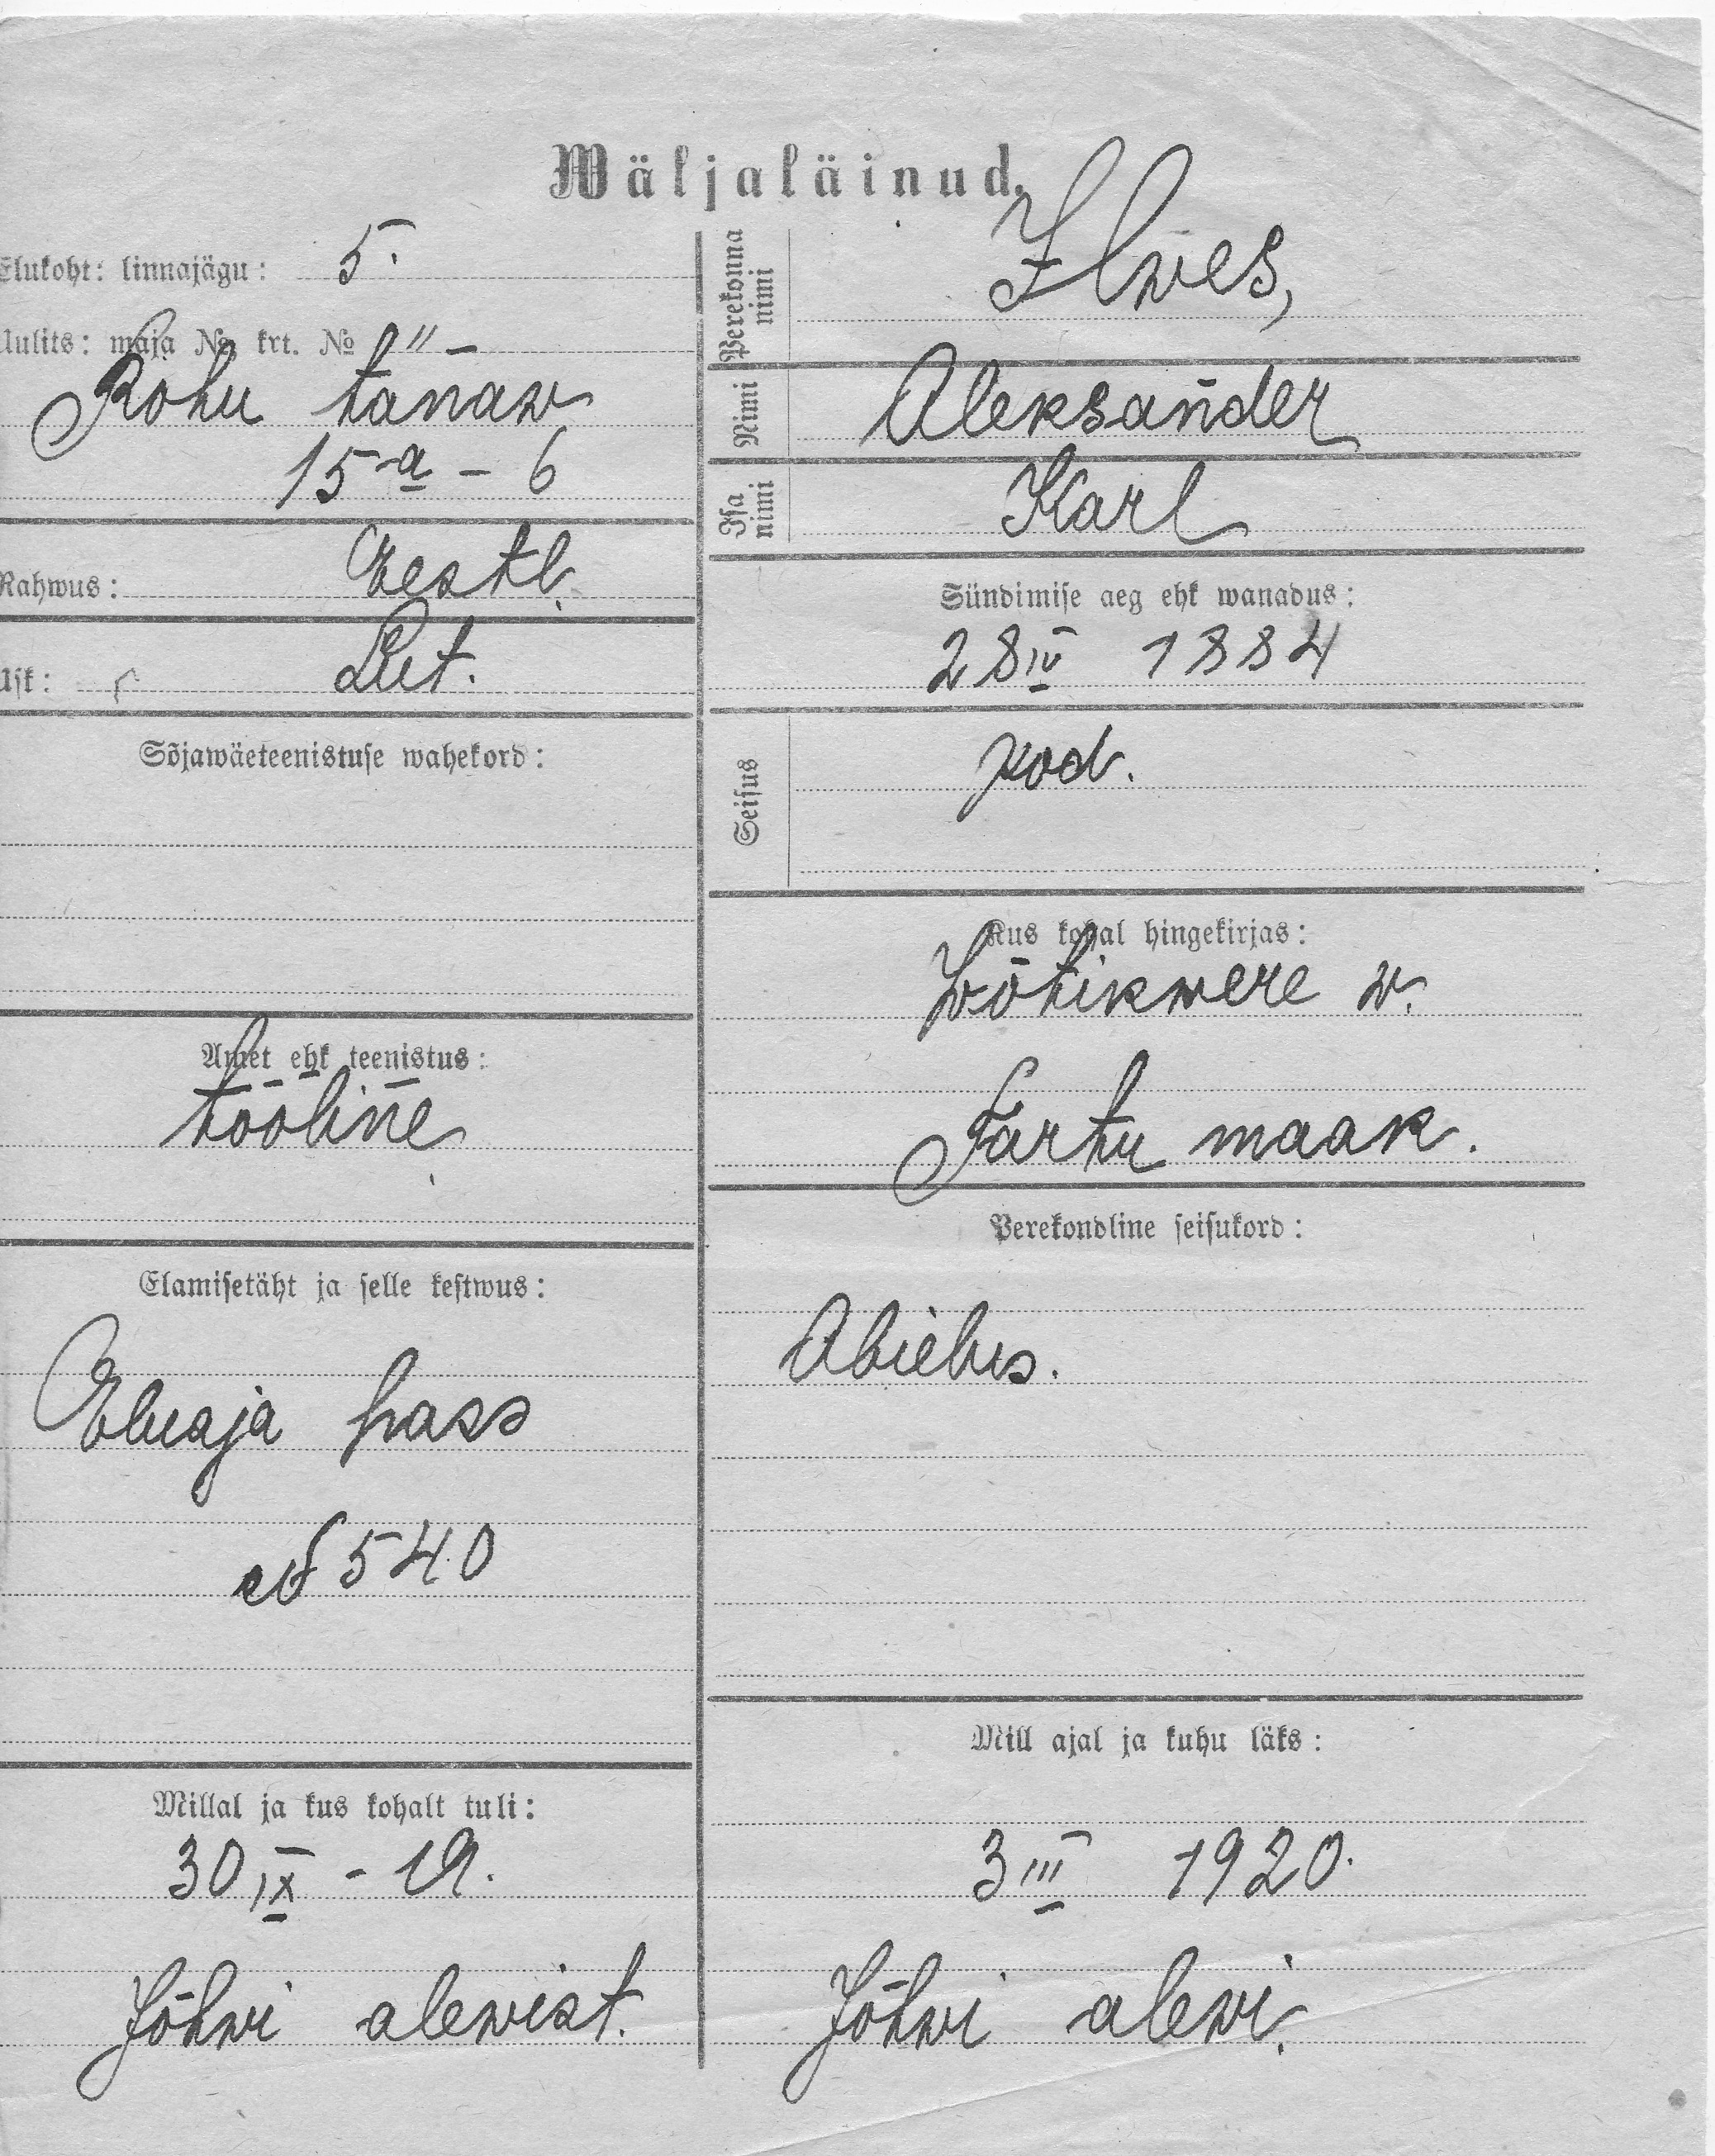 Wäljaläinud.
Elukoht: linnajägu: 5.
Uulits: maja № krt. № " –
Rohu tänaw
15-a - 6
Rahwus: Eestl.
Usk: Lut.
Sõjawäeteenistuse wahekord:
Amet ehk teenistus:
tööline
Elamisetäht ja selle kestwus:
Eluaja pass
№ 540
Millal ja kus kohalt tuli:
30 IX - 19.
Jõhwi alewist.
Perekonna nimi
Ilwes,
Nimi
Aleksander
Isa nimi
Karl
Sündimise aeg ehk wanadus:
28 IV 1884
Seisus
kod.
Kus kohal hingekirjas:
Wõtikwere w.
Tartu maak.
Perekondline seisukord:
Abielus.
Mill ajal ja kuhu läks:
3 III 1920.
Jõhwi alewi.